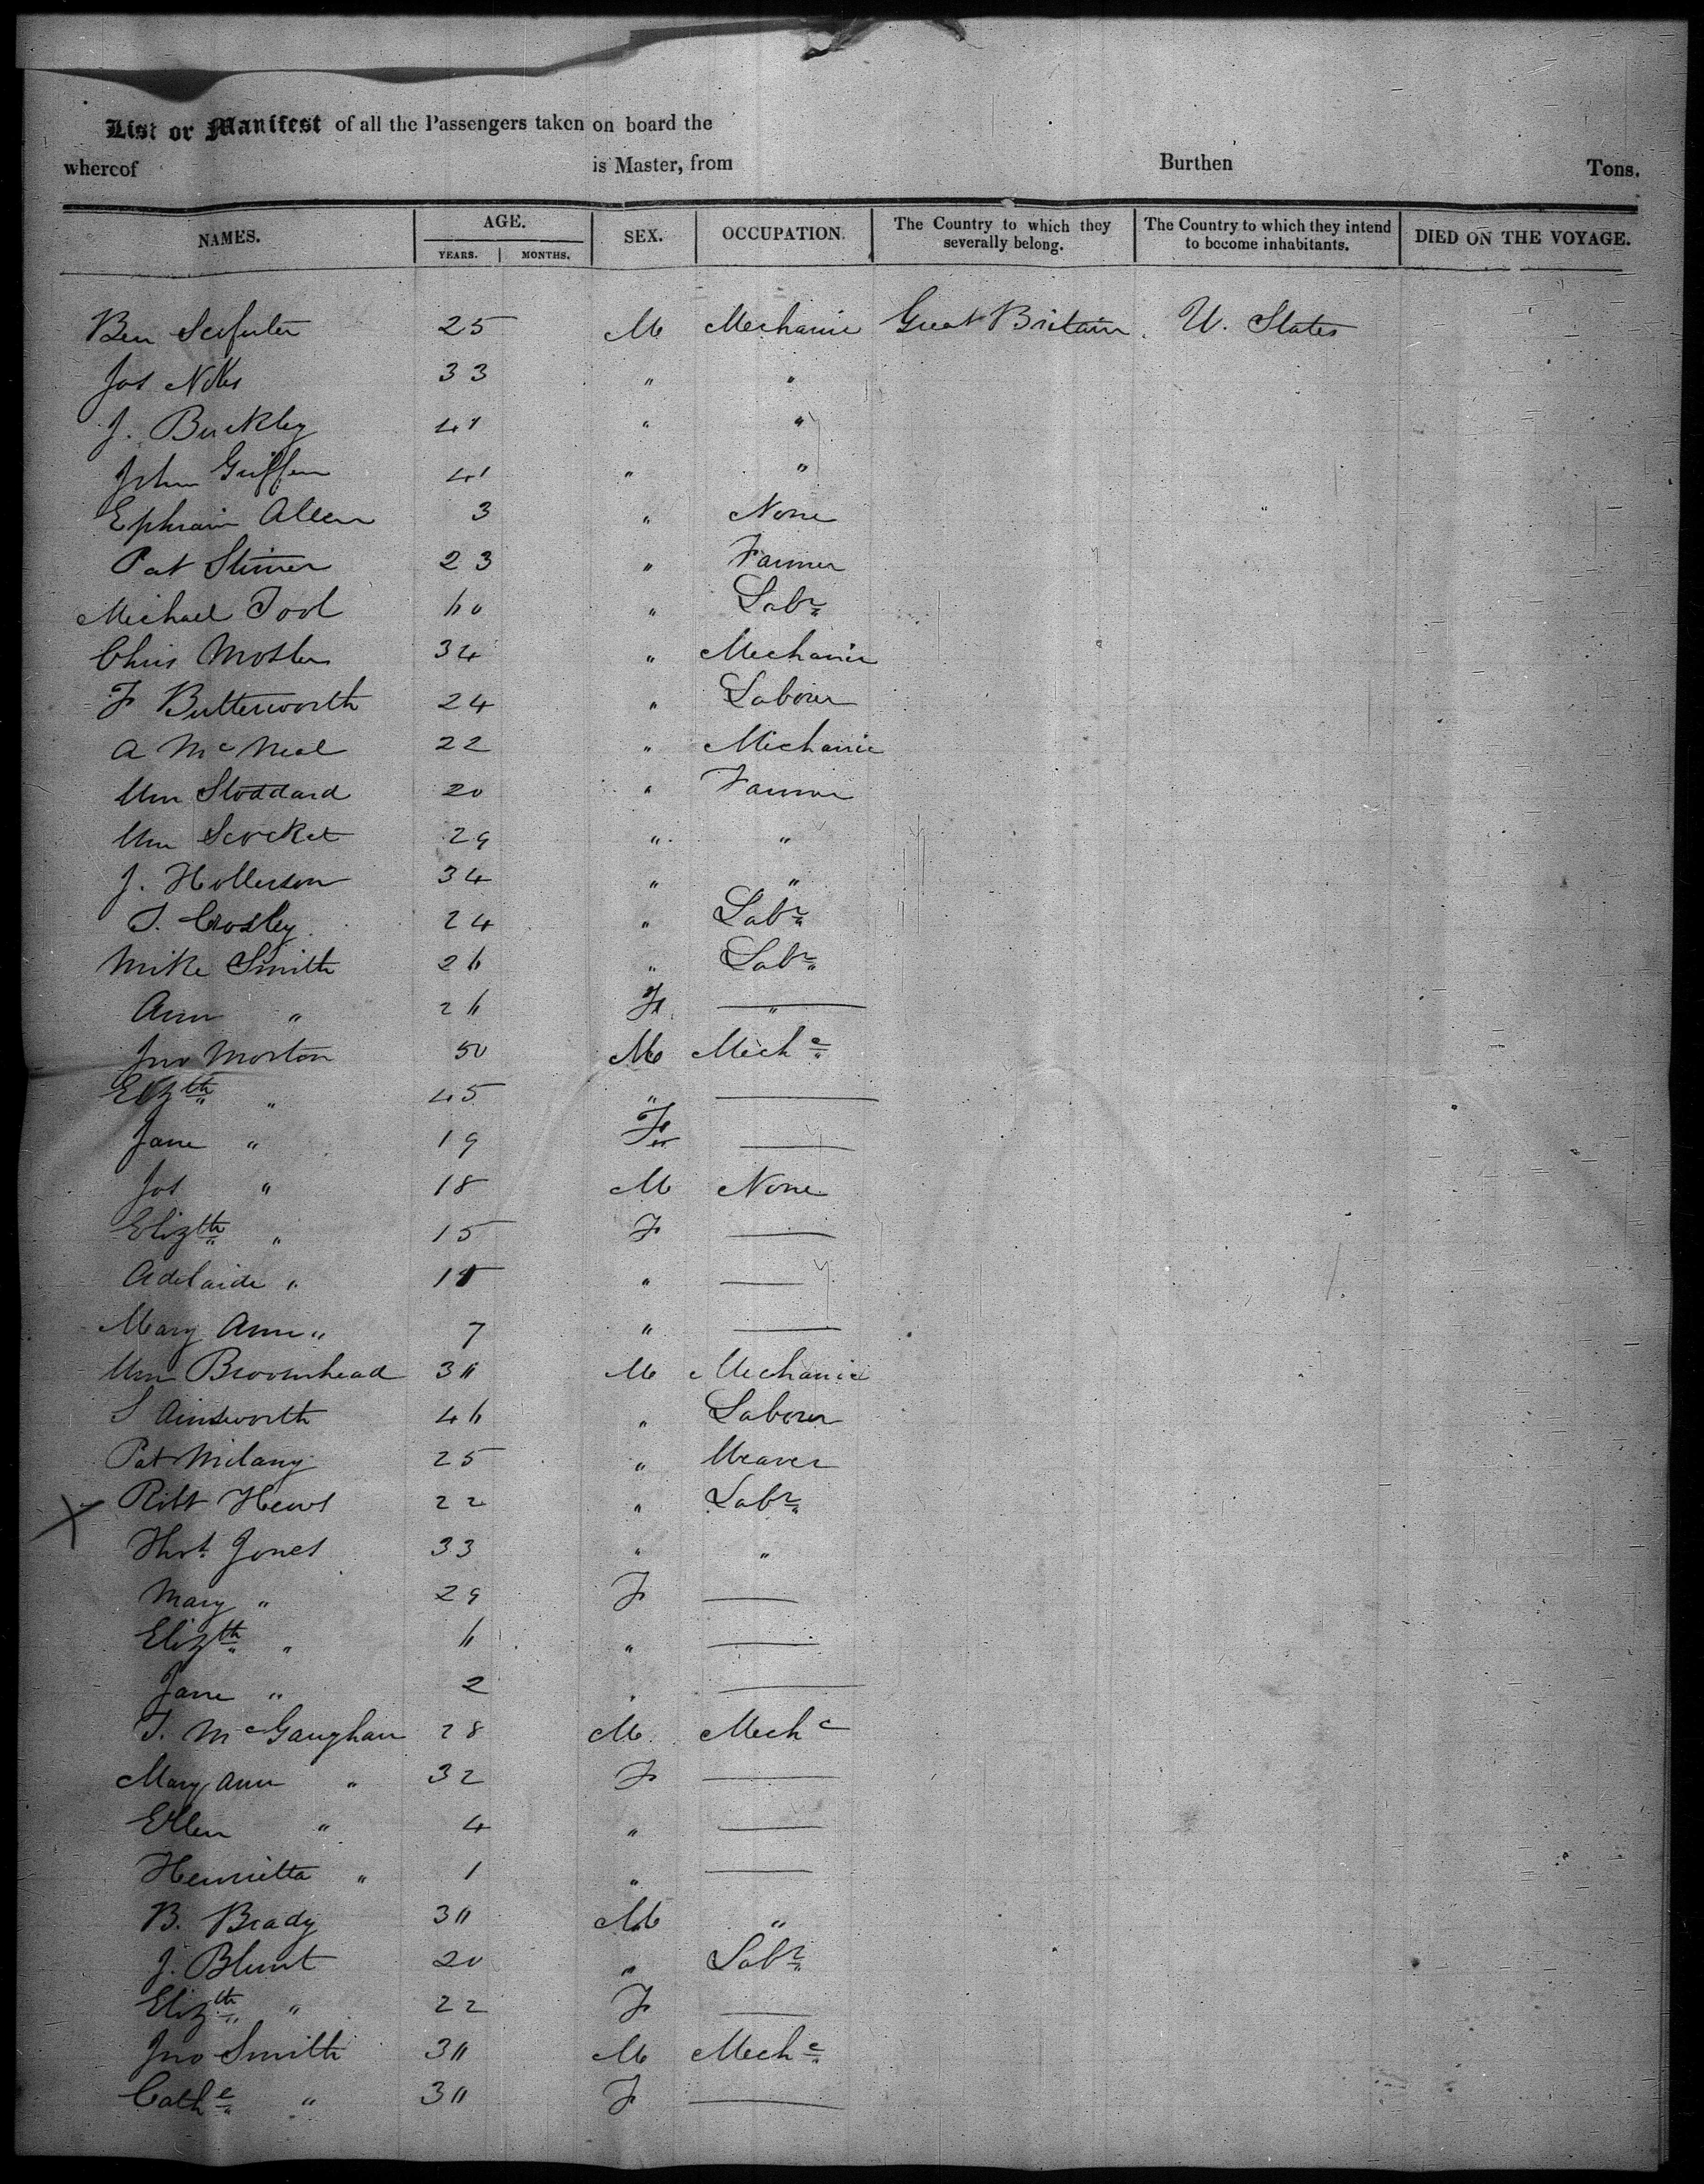 List or Manifest of all the Passengers taken on board the
whereof is Master, from Burthen Tons.
NAMES. AGE. SEX. OCCUPATION. The Country to which they severally belong. The Country to which they intend to become inhabitants. DIED ON THE VOYAGE.
YEARS. MONTHS.
Ben 25 M Mechanic Great Britain U. States
Jos 33 " "
J. Buckley 41 " "
John Griffen 41 " "
Ephraim Allen 3 " None
Pat 23 " Farmer
Michael Tool 60 " Labr
Chris 34 " Mechanic
F Butterworth 24 " Laborer
A McNeal 22 " Mechanic
Wm Stoddard 20 " Farmer
Wm 29 " "
J. Hollerson 34 " "
T. Crosley 24 " Labr
Mike Smith 26 " Labr
Ann " 26 F "
Jno Morton 50 M Mechc
Elizth " 45 "
Jane " 19 F
Jos " 18 M None
Elizth " 15 F
Adelaide " "
Mary Ann " 7 "
Wm Broomhead 36 M Mechanic
S Ainsworth 46 " Laborer
Pat Milany 25 " Weaver
Robt Hews 22 " Labr
Thos Jones 33 " "
Mary " 29 F
Elizth " 6 "
Jane " 2 "
T. McGaughan 28 M Mechc
Mary Ann " 32 F
Ellen " 4 "
Henrietta " 1 "
B. Brady 30 M "
J. Blunt 20 " Labr
Elizth " 22 F
Jno Smith 30 M Mechc
Cathe " 30 F